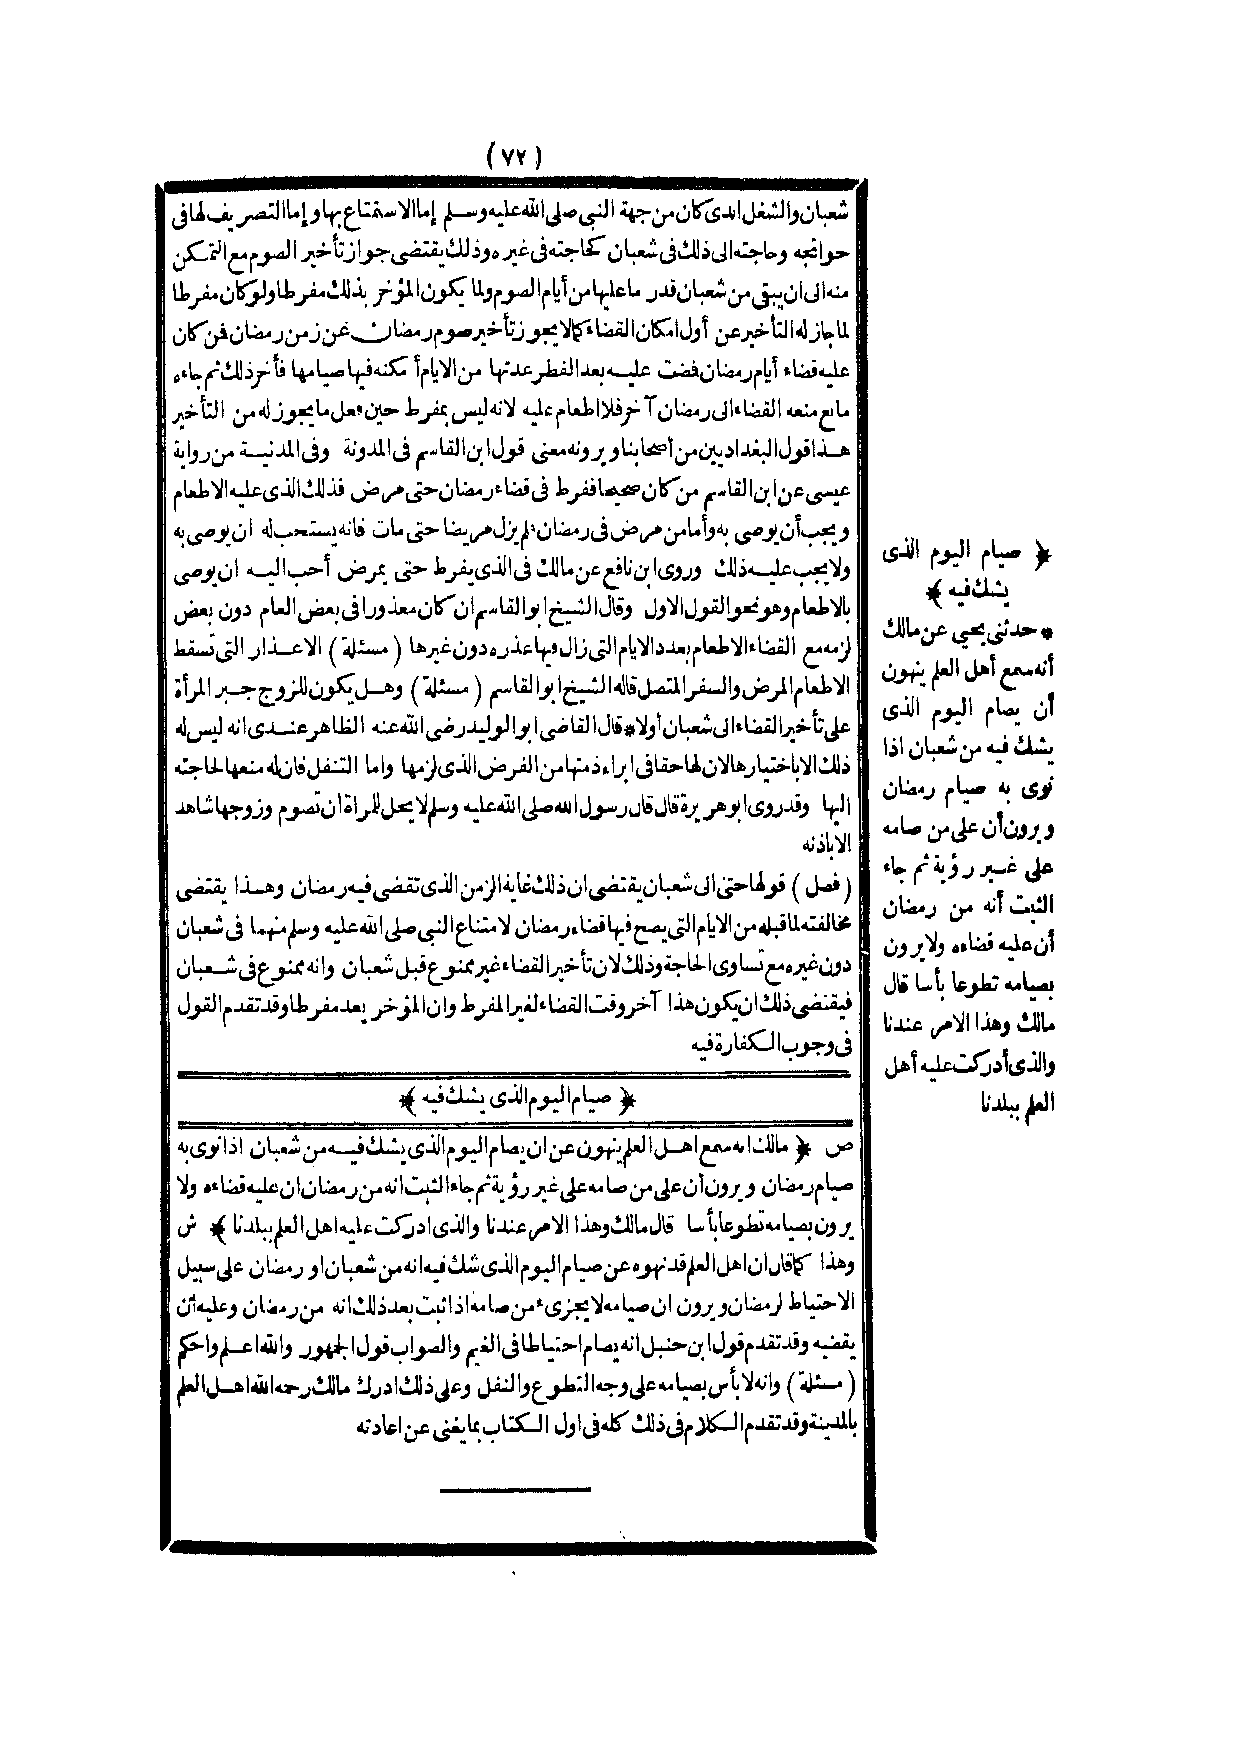 (٧٢)
شعبان والشغل الذى كان من جهة النبى صلى الله عليه وسلم إما الاستمتاع بها وإما التصريف لها فى
حوائجه وحاجته الى ذلك فى شعبان كحاجته فى غيره وذلك يقتضى جواز تأخير الصوم مع التمكن
منه الى ان يبقى من شعبان قدر ما عليها من أيام الصوم ولما يكون المؤخر بذلك مفرطا ولو كان مفرطا
لما جاز له التأخير عن أول امكان القضاء كما لا يجوز تأخير صوم رمضان عن زمن رمضان فمن كان
عليه قضاء أيام رمضان فمضت عليه بعد الفطر عدتها من الايام أمكنه فيها صيامها فأخر ذلك ثم جاءه
مانع منعه القضاء الى رمضان آخر فلا اطعام عليه لانه ليس بمفرط حين فعل ما يجوز له من التأخير
هذا قول البغداديين من أصحابنا ويرونه معنى قول ابن القاسم فى المدونة وفى المدنية من رواية
عيسى عن ابن القاسم من كان صحيحا ففرط فى قضاء رمضان حتى مرض فذلك الذى عليه الاطعام
ويجب أن يوصى به وأما من مرض فى رمضان فلم يزل مريضا حتى مات فانه يستحب له ان يوصى به
ولا يجب عليه ذلك وروى ابن نافع عن مالك فى الذى يفرط حتى يمرض أحب اليه ان يوصى
بالاطعام وهو نحو القول الاول وقال الشيخ ابو القاسم ان كان معذورا فى بعض العام دون بعض
لزمه مع القضاء الاطعام بعدد الايام التى زال فيها عذره دون غيرها (مسئلة) الاعذار التى تسقط
الاطعام المرض والسفر المتصل قاله الشيخ ابو القاسم (مسئلة) وهل يكون للزوج جبر المرأة
على تأخير القضاء الى شعبان أولا * قال القاضى ابو الوليد رضى الله عنه الظاهر عندى انه ليس له
ذلك الا باختيارها لان لها حقا فى ابراء ذمتها من الفرض الذى لزمها واما التنفل فان له منعها لحاجته
اليها وقد روى ابو هريرة قال قال رسول الله صلى الله عليه وسلم لا يحل للمرأة ان تصوم وزوجها شاهد
الا باذنه
(فصل) قولها حتى الى شعبان يقتضى ان ذلك غاية الزمن الذى تقضى فيه رمضان وهذا يقتضى
مخالفته لما قبله من الايام التى يصح فيها قضاء رمضان لامتناع النبى صلى الله عليه وسلم منها فى شعبان
دون غيره مع تساوى الحاجة وذلك لان تأخير القضاء غير ممنوع قبل شعبان وانه ممنوع فى شعبان
فيقتضى ذلك ان يكون هذا آخر وقت القضاء لغير المفرط وان المؤخر بعد مفرط وقد تقدم القول
فى وجوب الكفارة فيه
﴿ صيام اليوم الذى يشك فيه ﴾
ص ﴿ مالك انه سمع اهل العلم ينهون عن ان يصام اليوم الذى يشك فيه من شعبان اذا نوى به
صيام رمضان ويرون أن على من صامه على غير رؤية ثم جاء الثبت انه من رمضان ان عليه قضاءه ولا
يرون بصيامه تطوعا بأسا قال مالك وهذا الامر عندنا والذى ادركت عليه اهل العلم ببلدنا ﴾ ش
وهذا كما قال ان اهل العلم قد نهوه عن صيام اليوم الذى شك فيه انه من شعبان او رمضان على سبيل
الاحتياط لرمضان ويرون ان صيامه لا يجزىء من صامه اذا ثبت بعد ذلك انه من رمضان وعليه أن
يقضيه وقد تقدم قول ابن حنبل انه يصام احتياطا فى الغيم والصواب قول الجمهور والله اعلم واحكم
(مسئلة) وانه لا بأس بصيامه على وجه التطوع والنفل وعلى ذلك ادرك مالك رحمه الله اهل العلم
بالمدينة وقد تقدم الكلام فى ذلك كله فى اول الكتاب بما يغنى عن اعادته
﴿ صيام اليوم الذى
يشك فيه ﴾
* حدثنى يحيى عن مالك
أنه سمع أهل العلم ينهون
أن يصام اليوم الذى
يشك فيه من شعبان اذا
نوى به صيام رمضان
ويرون أن على من صامه
على غير رؤية ثم جاء
الثبت أنه من رمضان
أن عليه قضاءه ولا يرون
بصيامه تطوعا بأسا قال
مالك وهذا الامر عندنا
والذى أدركت عليه أهل
العلم ببلدنا